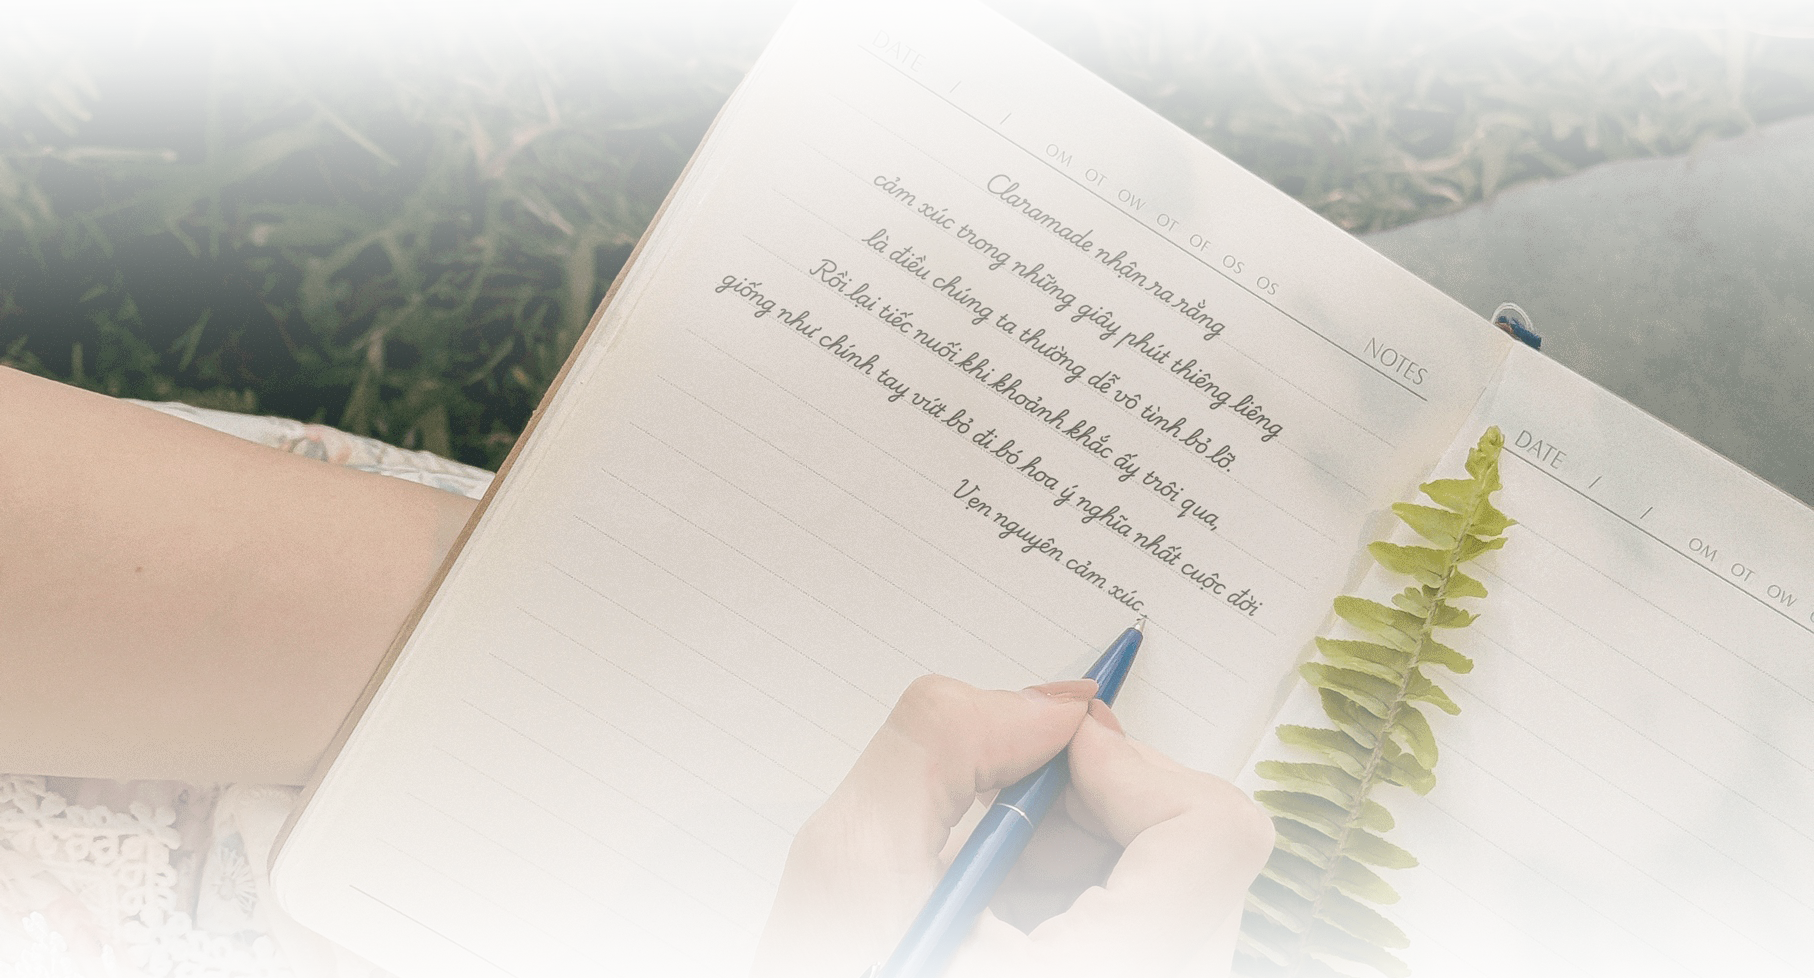 DATE / /
OM OT OW OT OF OS OS
NOTES
Claramade nhận ra rằng
cảm xúc trong những giây phút thiêng liêng
là điều chúng ta thường dễ vô tình bỏ lỡ.
Rồi lại tiếc nuối khi khoảnh khắc ấy trôi qua,
giống như chính tay vứt bỏ đi bó hoa ý nghĩa nhất cuộc đời
Vẹn nguyên cảm xúc
DATE / /
OM OT OW